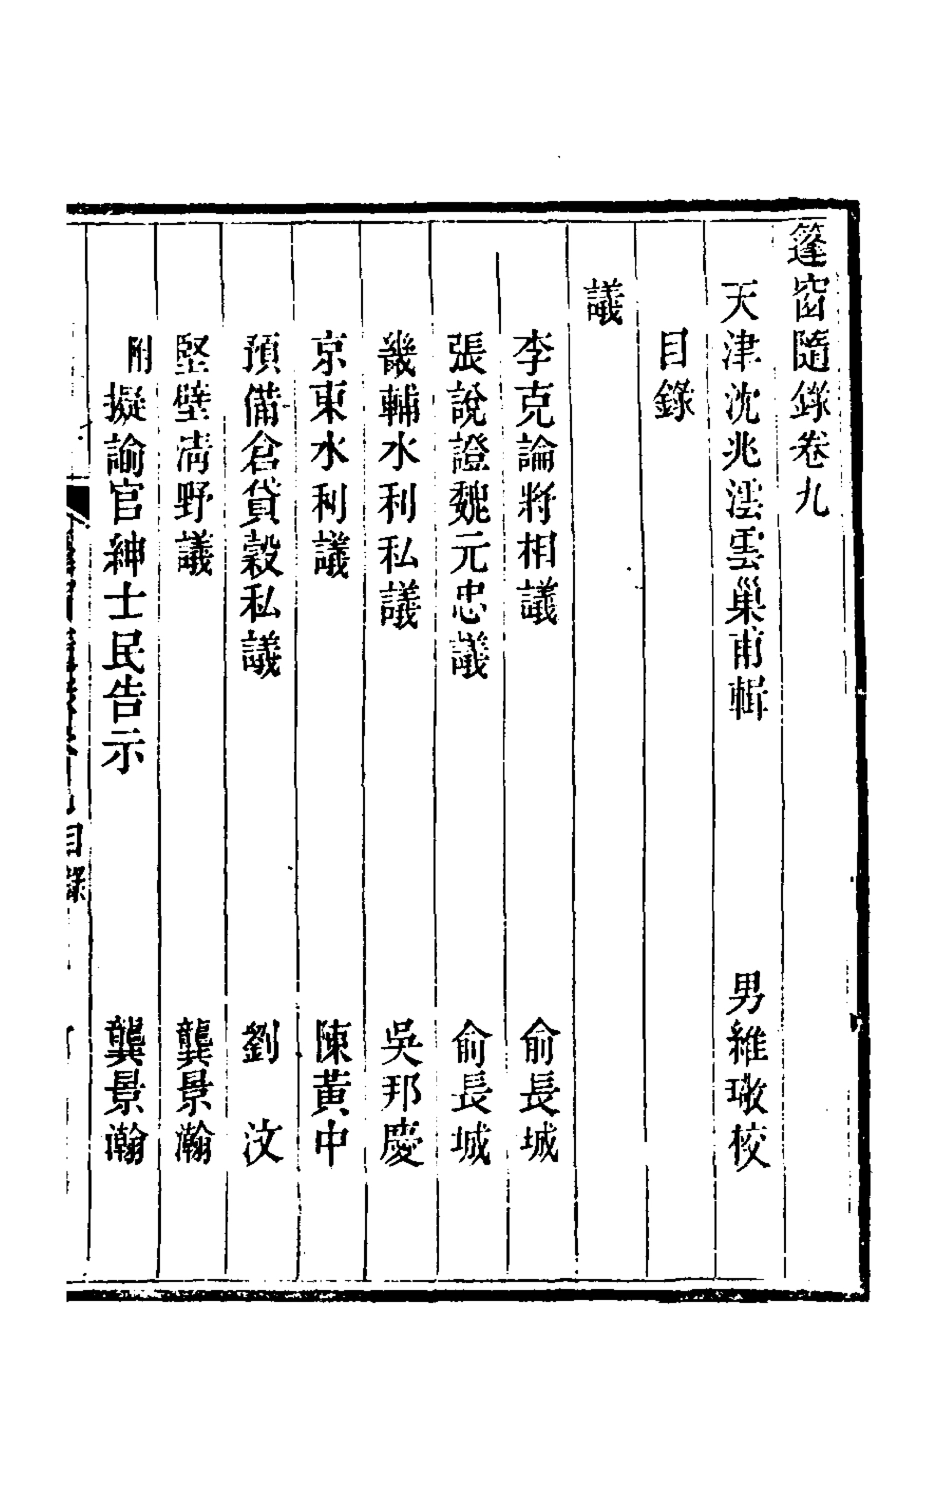 篷窗隨錄卷九
天津沈兆澐雲巢甫輯　男維璥校
目錄
議
李克論將相議　俞長城
張說證魏元忠議　俞長城
畿輔水利私議　吳邦慶
京東水利議　陳黃中
預備倉貸穀私議　劉　汶
堅壁淸野議　龔景瀚
附擬諭官紳士民告示　龔景瀚
目錄